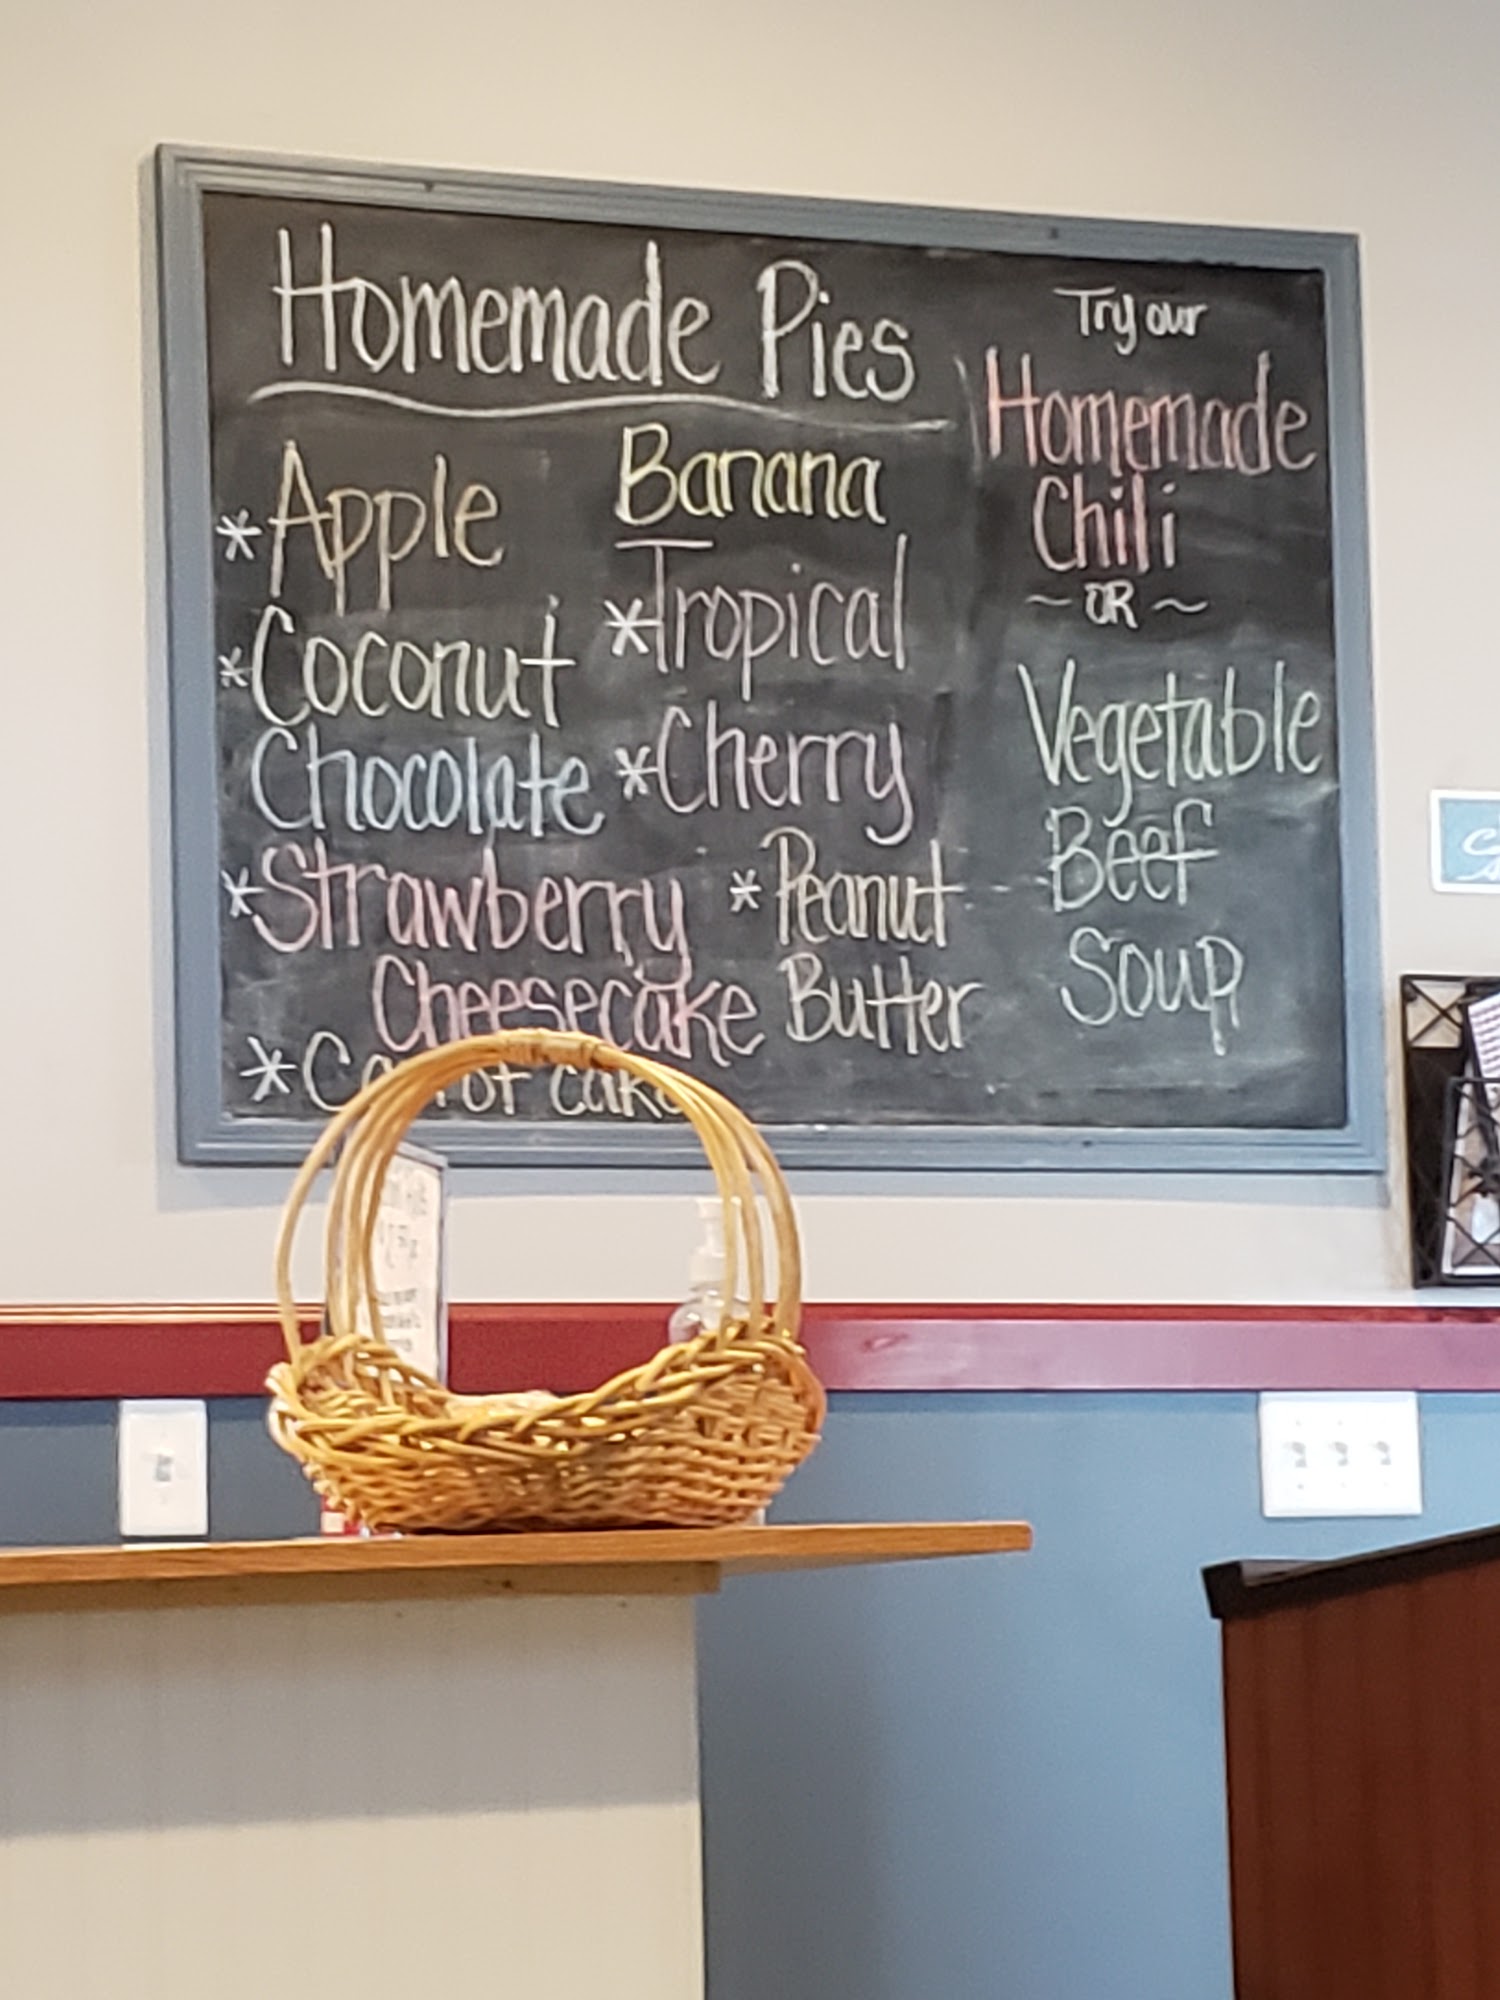 Homemade Pies
*Apple
*Coconut
Chocolate
*Strawberry
Cheesecake
*Carrot cake
Banana
*Tropical
*Cherry
*Peanut
Butter
Try our
Homemade
Chili
~ OR ~
Vegetable
Beef
Soup